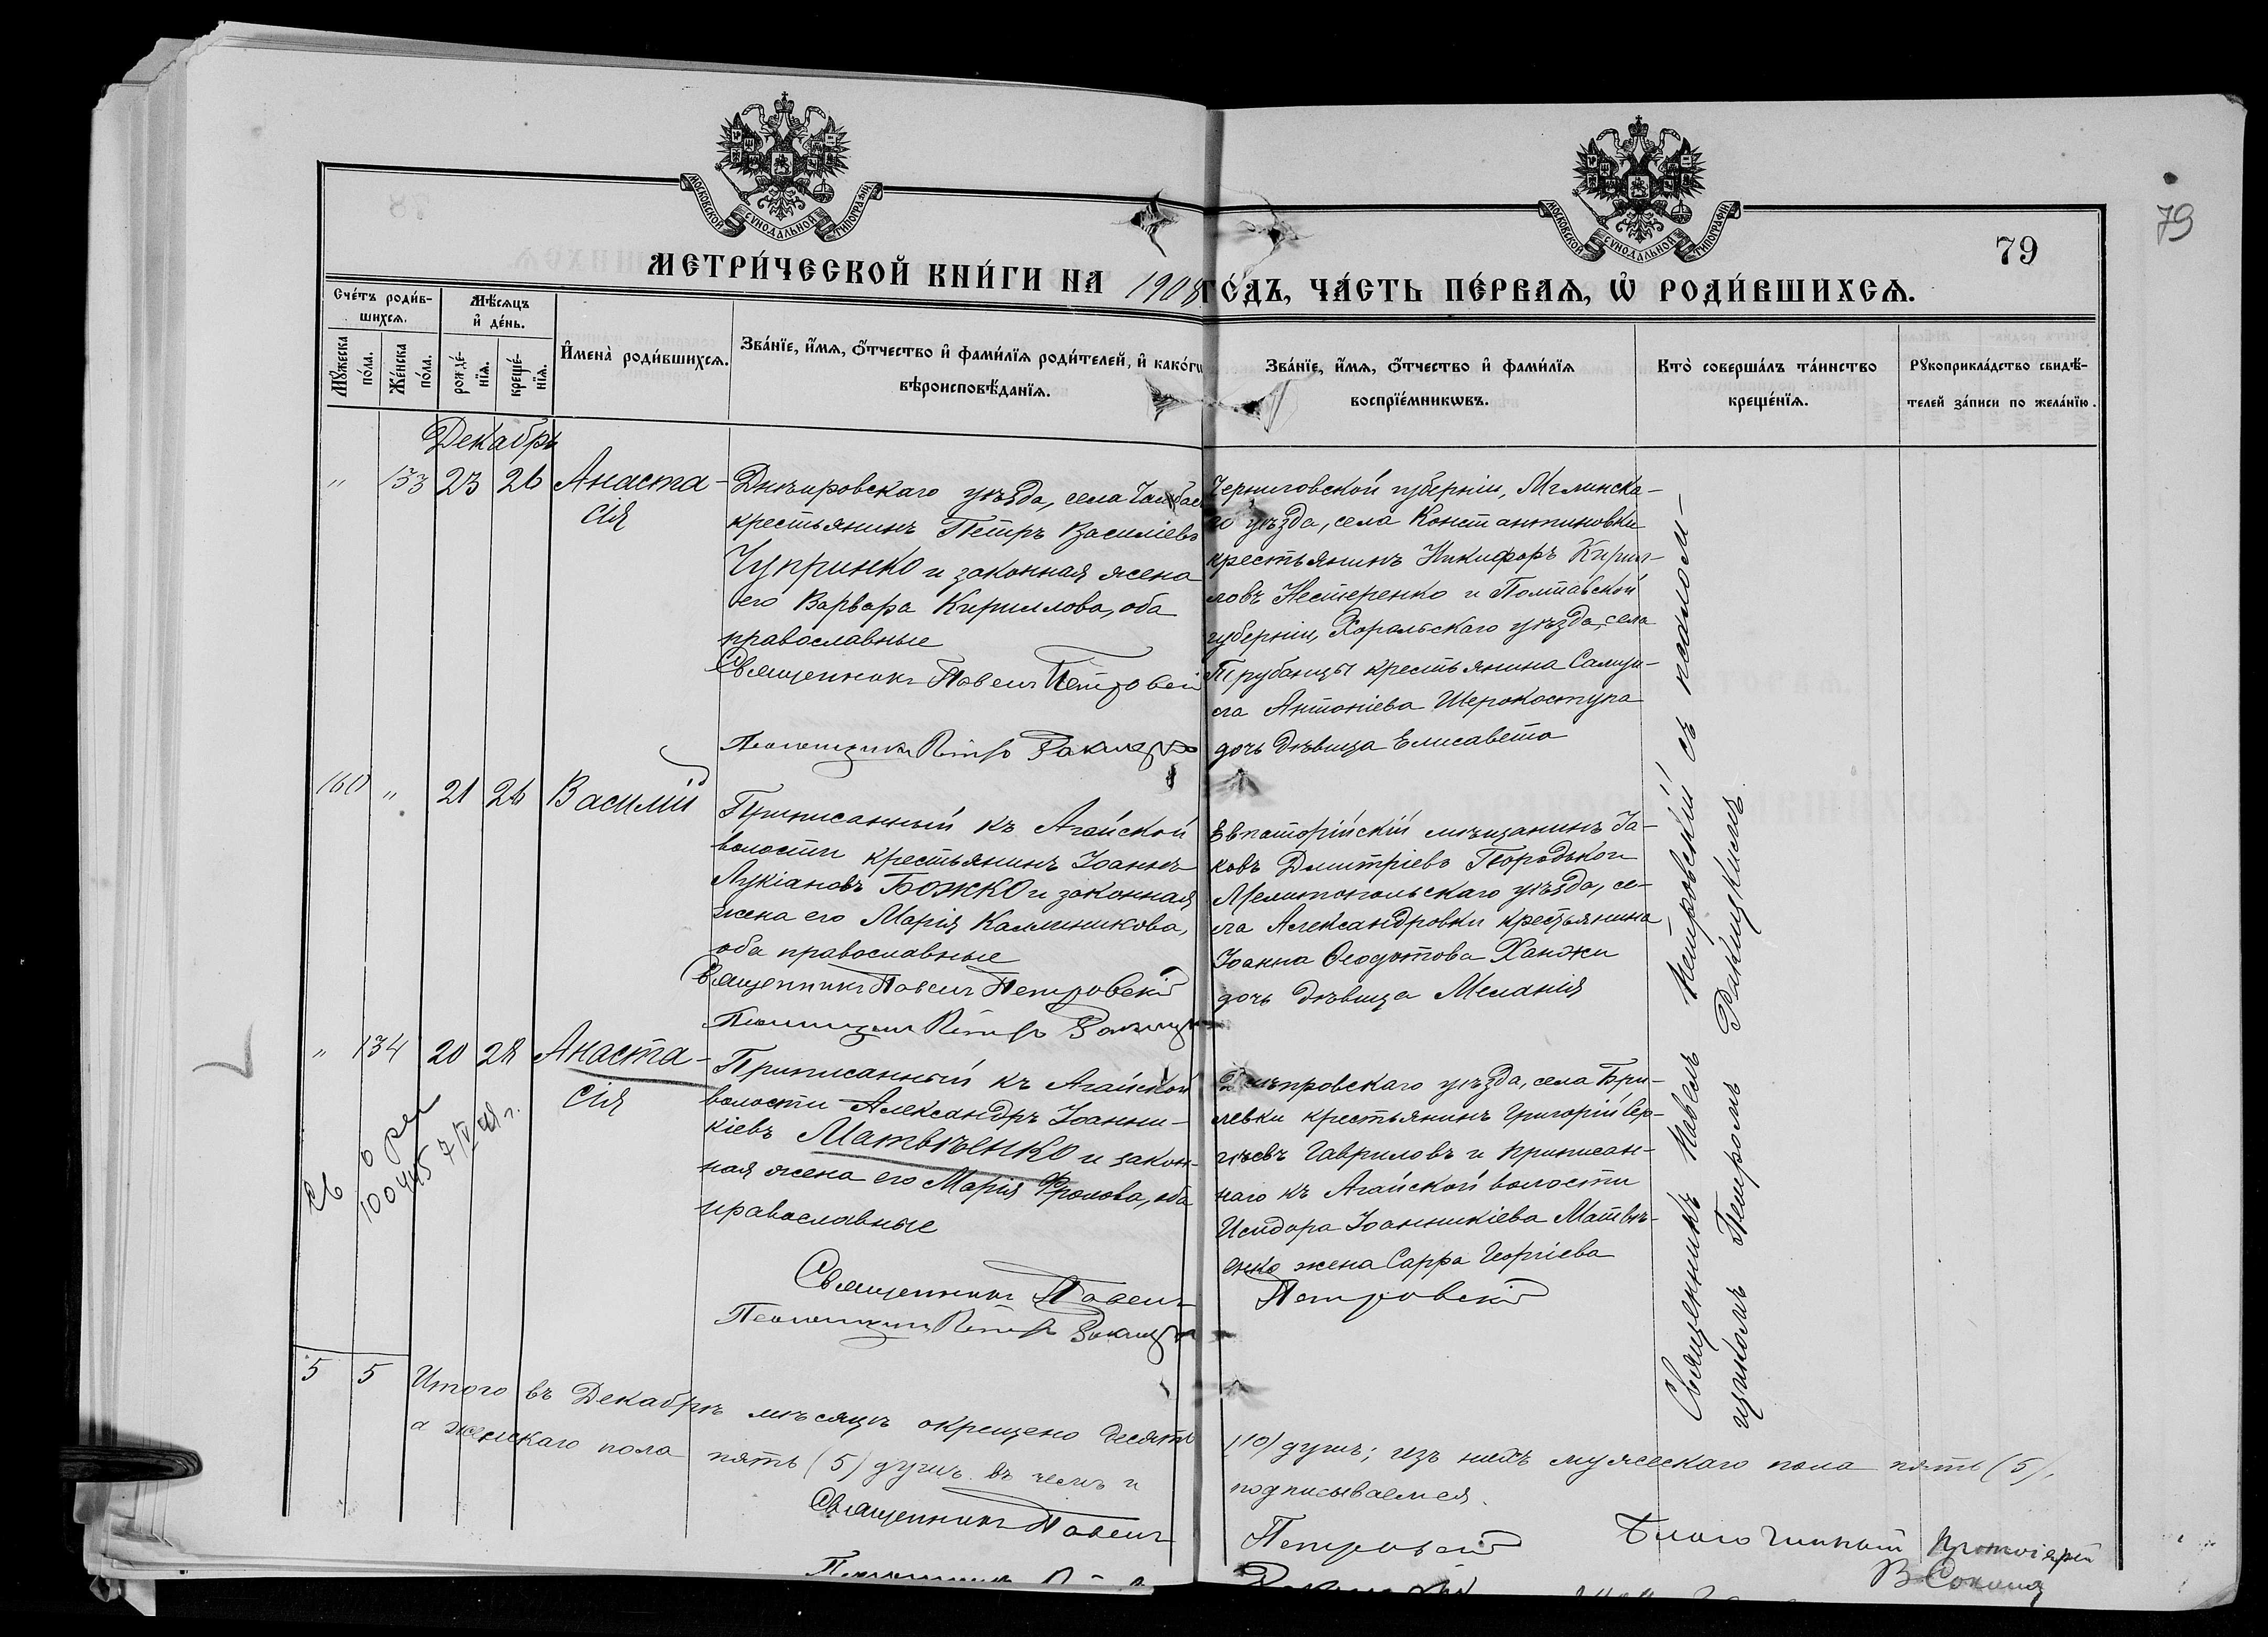 79
МОСКОВСКОЙ СѴНОДАЛЬНОЙ ТИПОГРАФІИ
МОСКОВСКОЙ СѴНОДАЛЬНОЙ ТИПОГРАФІИ
79
МЕТРИ́ЧЕСКОЙ КНИ́ГИ НА 1908 ГО́ДЪ, ЧА́СТЬ ПЕ́РВАѦ, Ѡ҆ РОДИ́ВШИХСѦ.
Сче́тъ роди́в-
шихсѧ.
Мꙋ́жеска по́ла.
Же́нска по́ла.
Мѣ́сѧцъ
и҆ де́нь.
рожде́-
нїѧ.
креще́-
нїѧ.
И҆мена̀ роди́вшихсѧ.
Зва́нїе, и҆́мѧ, ѻ҆́тчество и҆ фами́лїѧ роди́телей, и҆ како́гѡ
вѣроисповѣ́данїѧ.
Зва́нїе, и҆́мѧ, ѻ҆́тчество и҆ фами́лїѧ
воспрїе́мникѡвъ.
Кто̀ соверша́лъ та́инство
креще́нїѧ.
Рꙋкоприкла́дство свидѣ́-
телей за́писи по жела́нїю.
Декабрь
" 133 23 26 Анаста-
сія
Днѣпровскаго уѣзда, села
крестьянинъ Петръ Василіевъ
Чупринко и законная жена
его Варвара Кириллова, оба
православные
Священникъ Павелъ Петровскій
Псаломщикъ Петръ Ракицкій
Черниговской губерніи, Мглинска-
го уѣзда, села Константиновки
крестьянинъ Никифоръ Кирил-
ловъ Нестеренко и Полтавской
губерніи, Хорольскаго уѣзда, села
Трубайцы крестьянина Самуи-
ла Антоніева Шерокоступа
дочь дѣвица Елисавета
160 " 21 26 Василій
Приписанный къ Агайской
волости крестьянинъ Іоаннъ
Лукіановъ Божко и законная
жена его Марія Каллиникова,
оба православные
Священникъ Павелъ Петровскій
Псаломщикъ Петръ Ракицкій
Евпаторійскій мѣщанинъ Іа-
ковъ Димитріевъ Городько и
Мелитопольскаго уѣзда, се-
ла Александровки крестьянина
Іоанна Ѳеодотова Ханжи
дочь дѣвица Меланія
" 134 20 28 Анаста-
сія
Приписанный къ Агайской
волости Александръ Іоанни-
кіевъ Матвѣенко и закон-
ная жена его Марія Фролова, оба
православные
Священникъ Павелъ
Псаломщикъ Петръ Ракицкій
Днѣпровскаго уѣзда, села Бри-
левки крестьянинъ Григорій Сер-
гѣевъ Гавриловъ и приписан-
наго къ Агайской волости
Исидора Іоанникіева Матвѣ-
енко жена Сарра Георгіева
Петровскій
Священникъ Павелъ Петровскій съ псалом-
щикомъ Петромъ Ракицкимъ.
5 5 Итого въ Декабрѣ мѣсяцѣ окрещено десять
(10) душъ; изъ нихъ мужескаго пола пять (5),
а женскаго пола пять (5) душъ. въ чемъ и
подписываемся.
Священникъ Павелъ
Петровскій
Благочинный Протоіерей